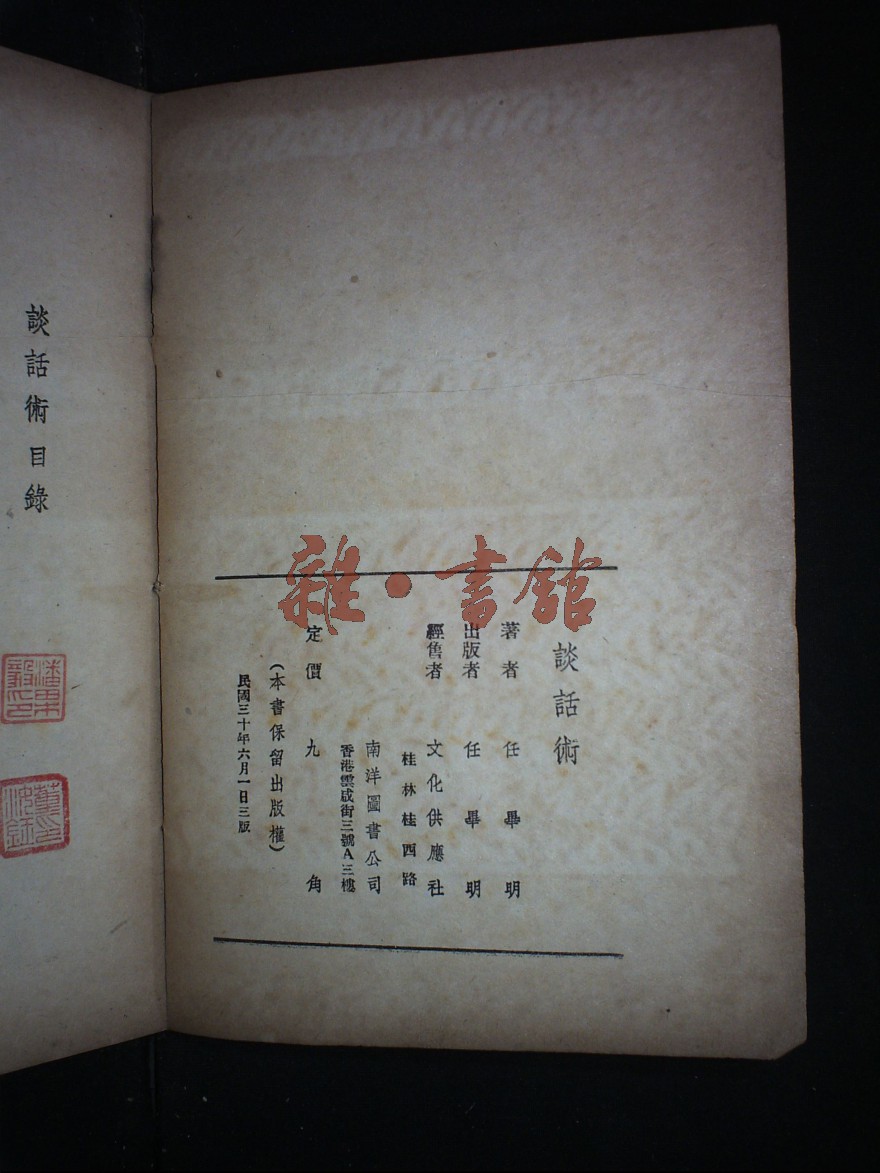 談話術
著者 任畢明
出版者 任畢明
經售者 文化供應社
桂林桂西路
南洋圖書公司
香港雲咸街三號A三樓
定價 九角
(本書保留出版權)
民國三十年六月一日三版
談話術目錄
雜·書館